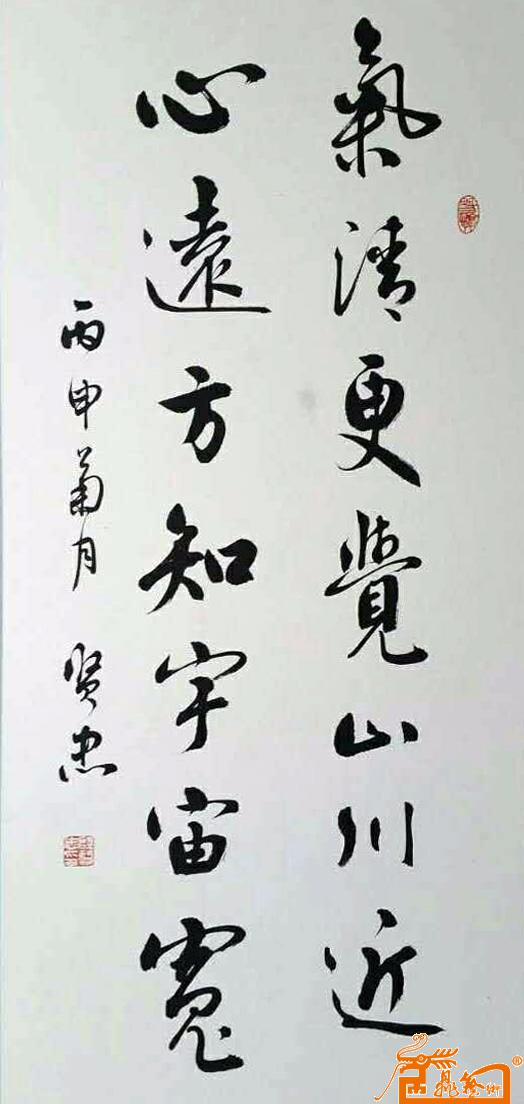 氣清更覺山川近
心遠方知宇宙寬
丙申菊月 贤忠